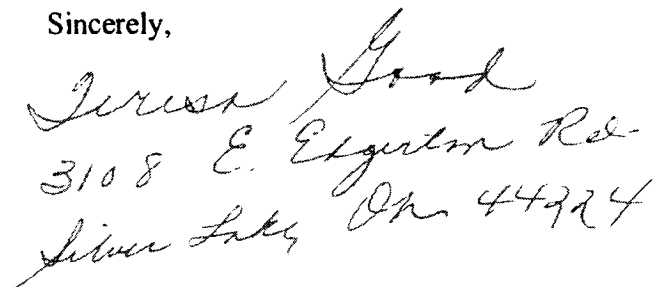 Sincerely,
Teresa Good
3108 E. Edgerton Rd
Silver Lake, Oh 44224